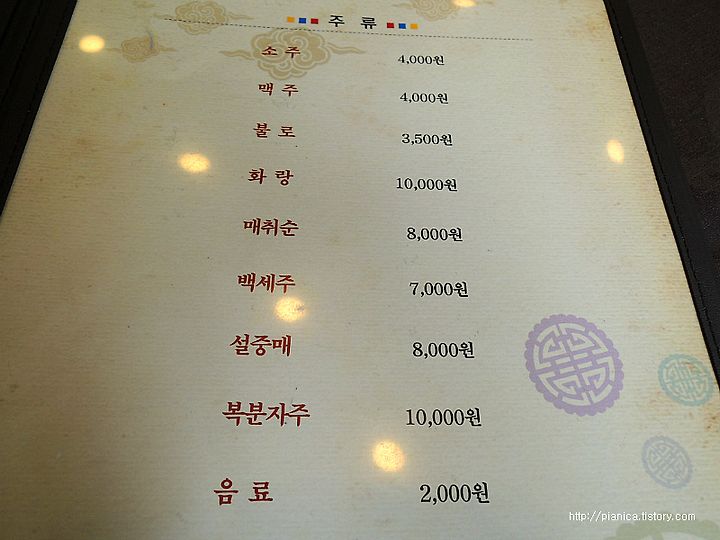 주 류
소 주 4,000원
맥 주 4,000원
불 로 3,500원
화 랑 10,000원
매취순 8,000원
백세주 7,000원
설중매 8,000원
복분자주 10,000원
음 료 2,000원
http://pianica.tistory.com